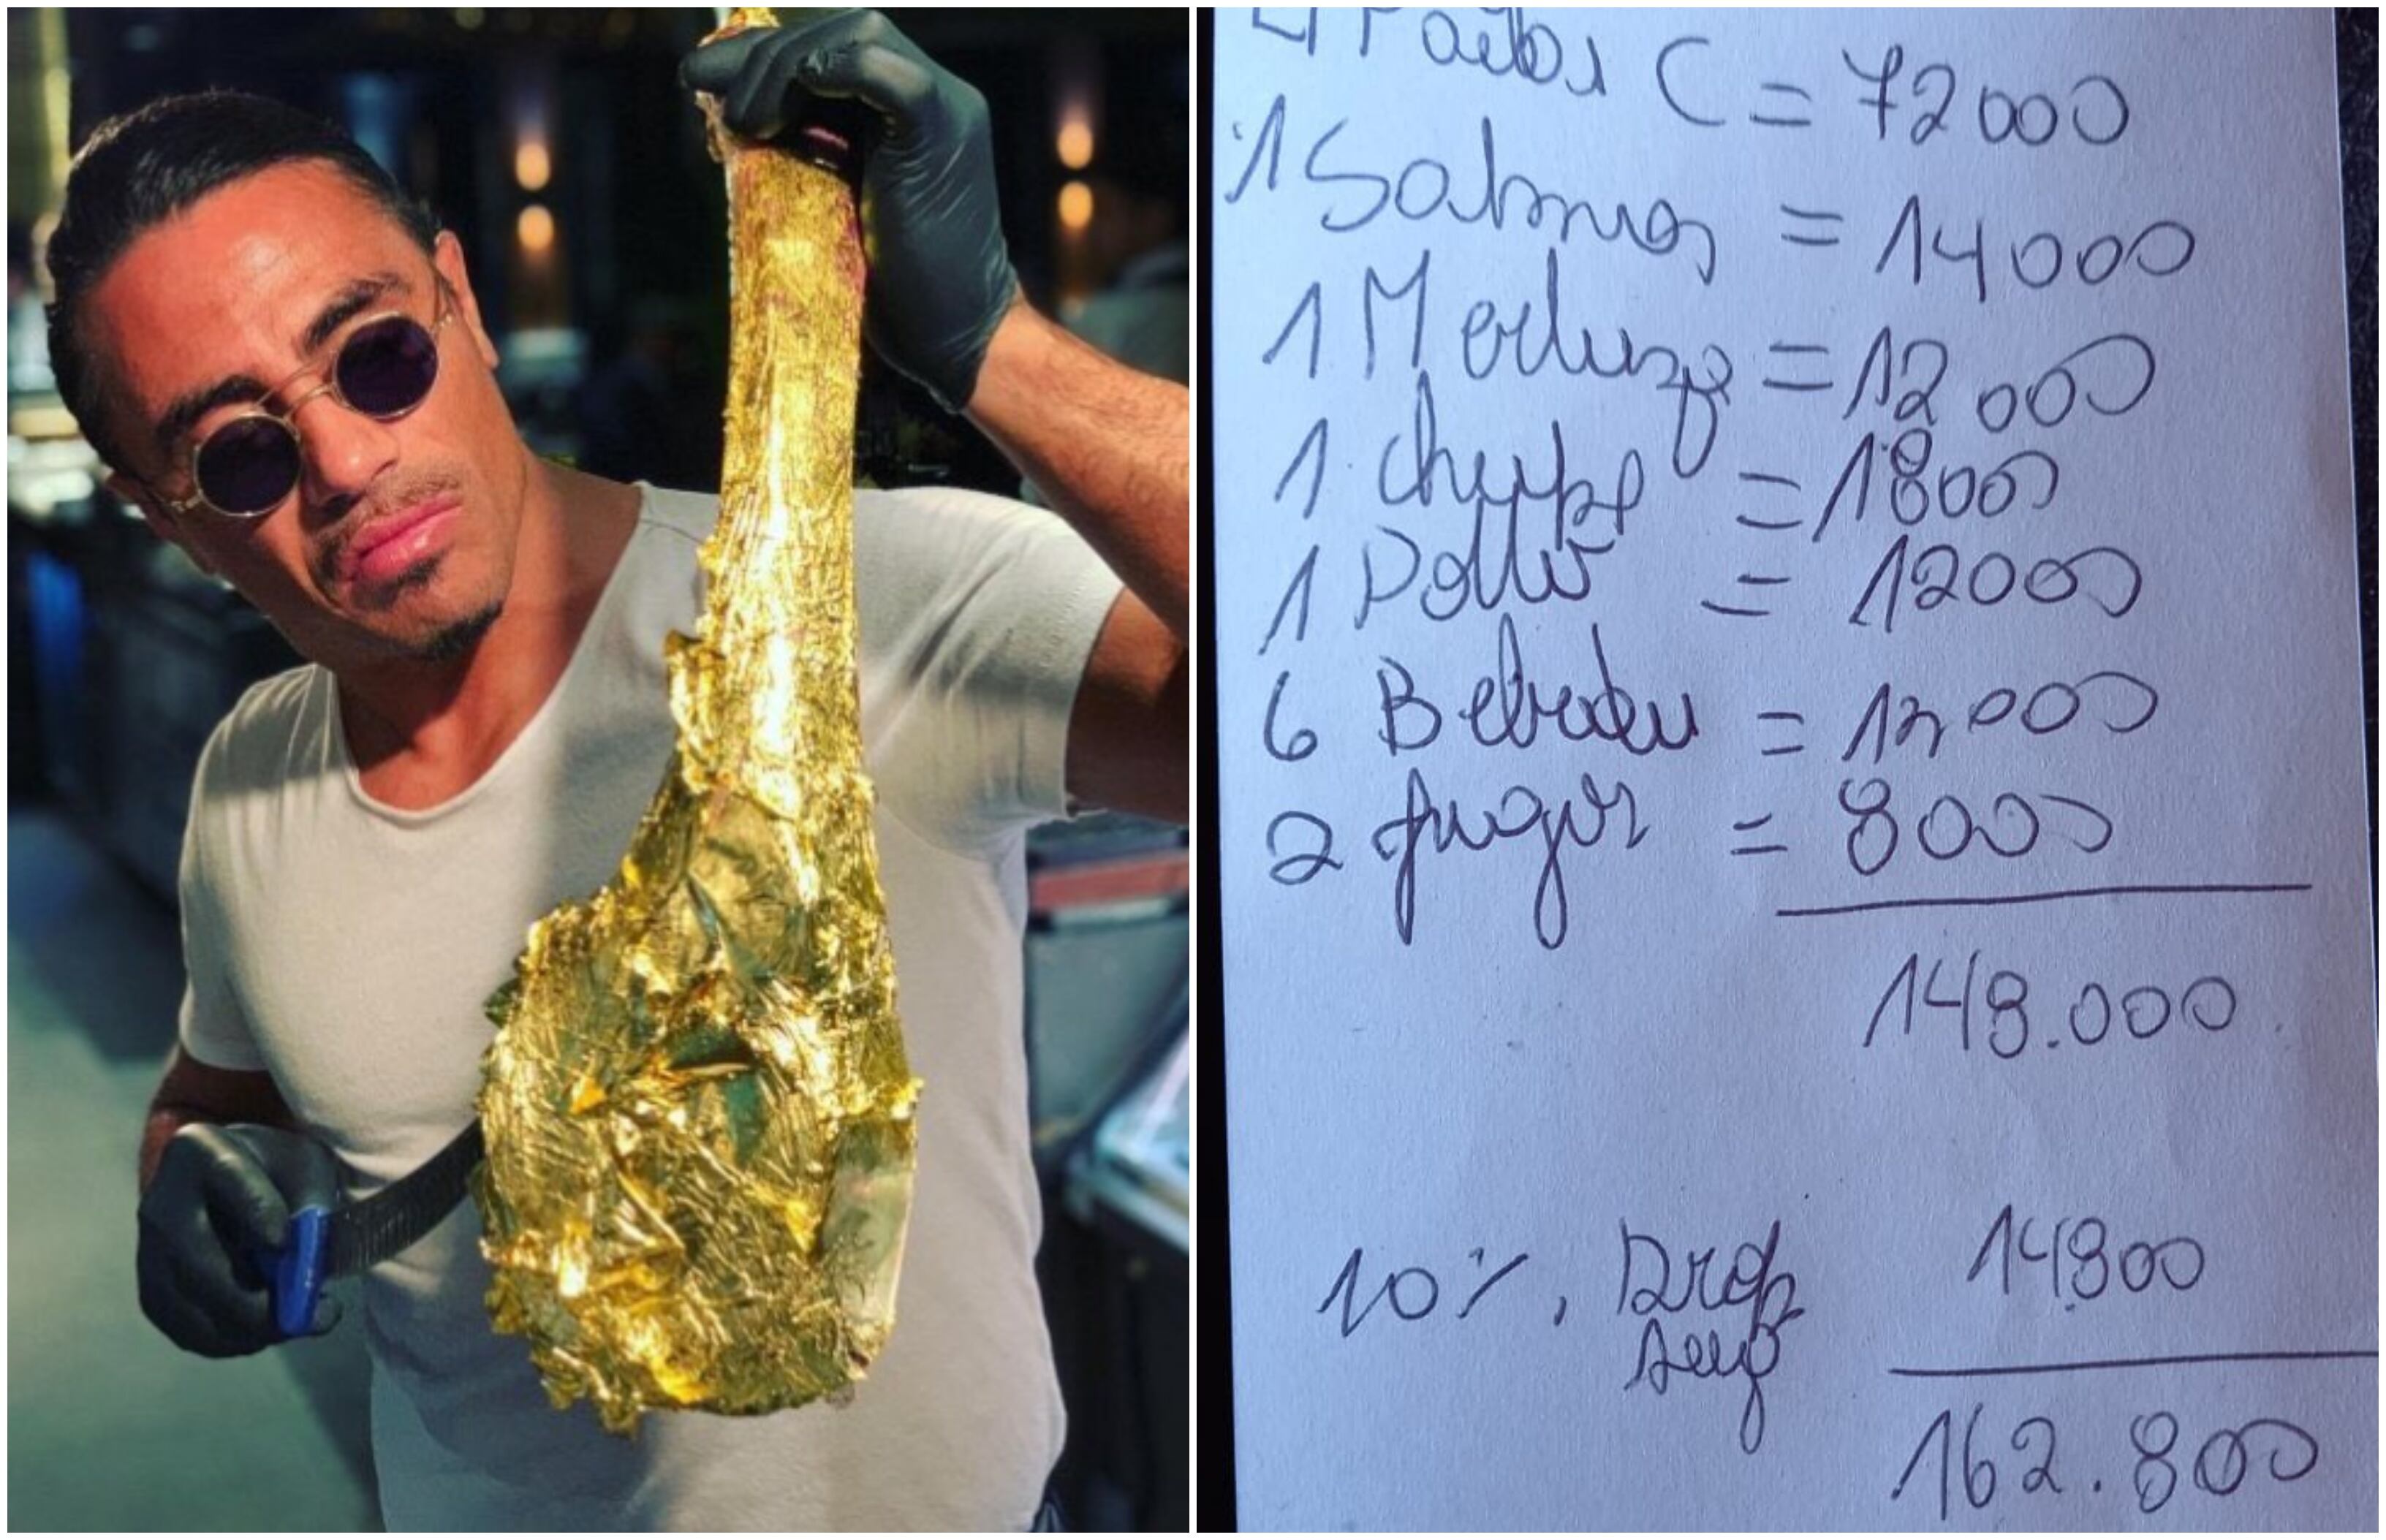 4 Pailas C = 72000
1 Salmon = 14000
1 Merluza = 12000
1 chupe = 18000
1 Pollo = 12000
6 Bebidas = 12000
2 Jugos = 8000
148.000
10%. Prop 14.800
sug
162.800